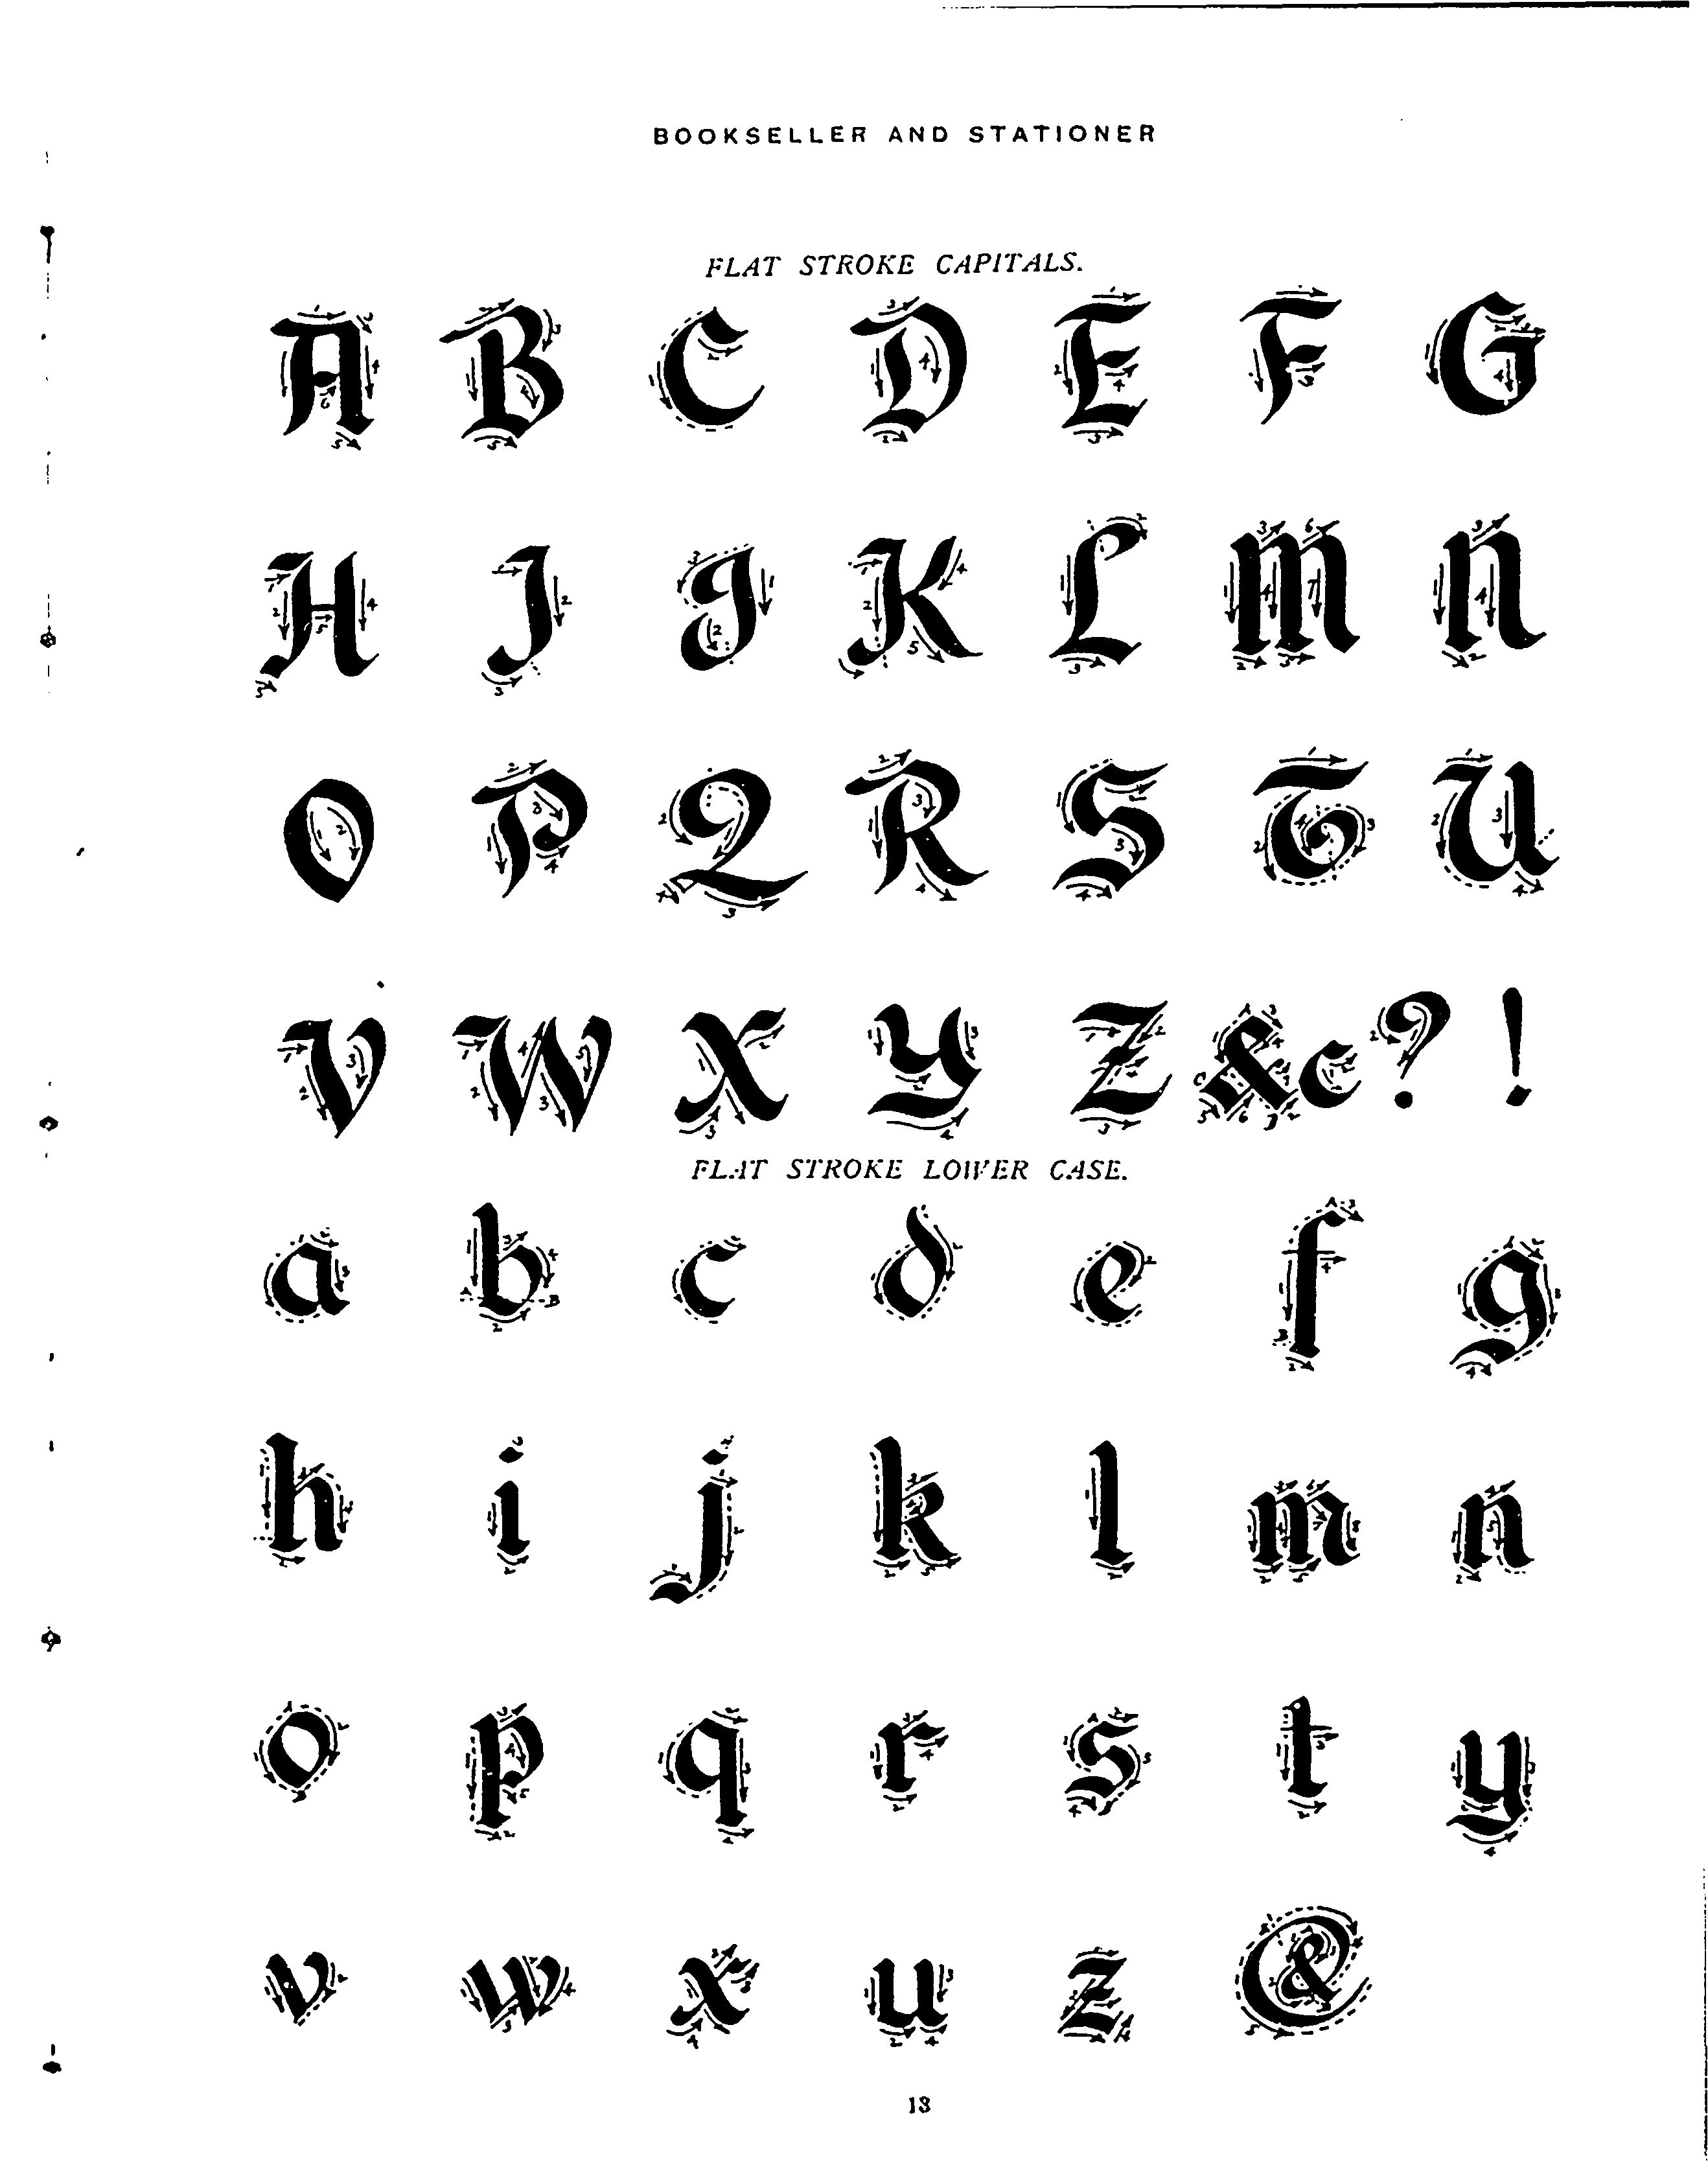 BOOKSELLER AND STATIONER
FLAT STROKE CAPITALS.
A B C D E F G
H I J K L M N
O P Q R S T U
V W X Y Z &c ? !
FLAT STROKE LOWER CASE.
a b c d e f g
h i j k l m n
o p q r s t y
v w x u z &
13